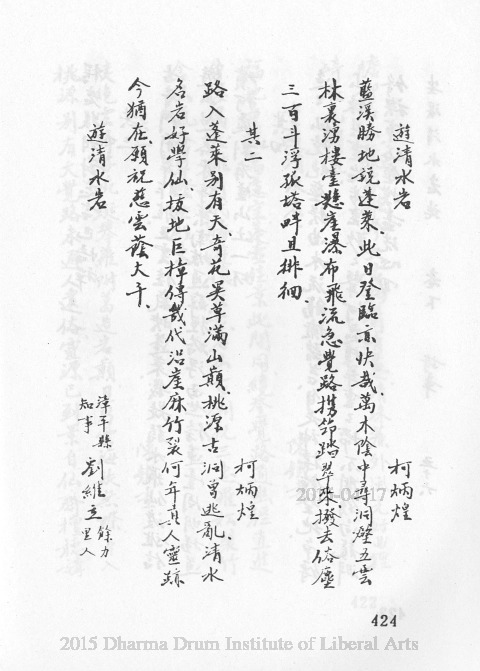 遊清水岩
柯炳煌
藍溪勝地說蓬萊、此日登臨亦快哉、萬木陰中尋洞壁五雲
林裏湧樓臺懸崖瀑布飛流急覺路携筇踏翠來、撥去俗塵
三百斗浮孤塔畔且排徊、
其二
柯炳煌
路入蓬萊别有天、奇花異草滿山巔、桃源古洞曾逃亂、清水
名岩好學仙、拔地巨樟傳幾代沿崖麻竹裂何年真人靈跡
今猶在、願祝慈雲蔭大千、
遊清水岩
漳平縣知事 劉維立 餘力里人
2015-04-17
424
2015 Dharma Drum Institute of Liberal Arts